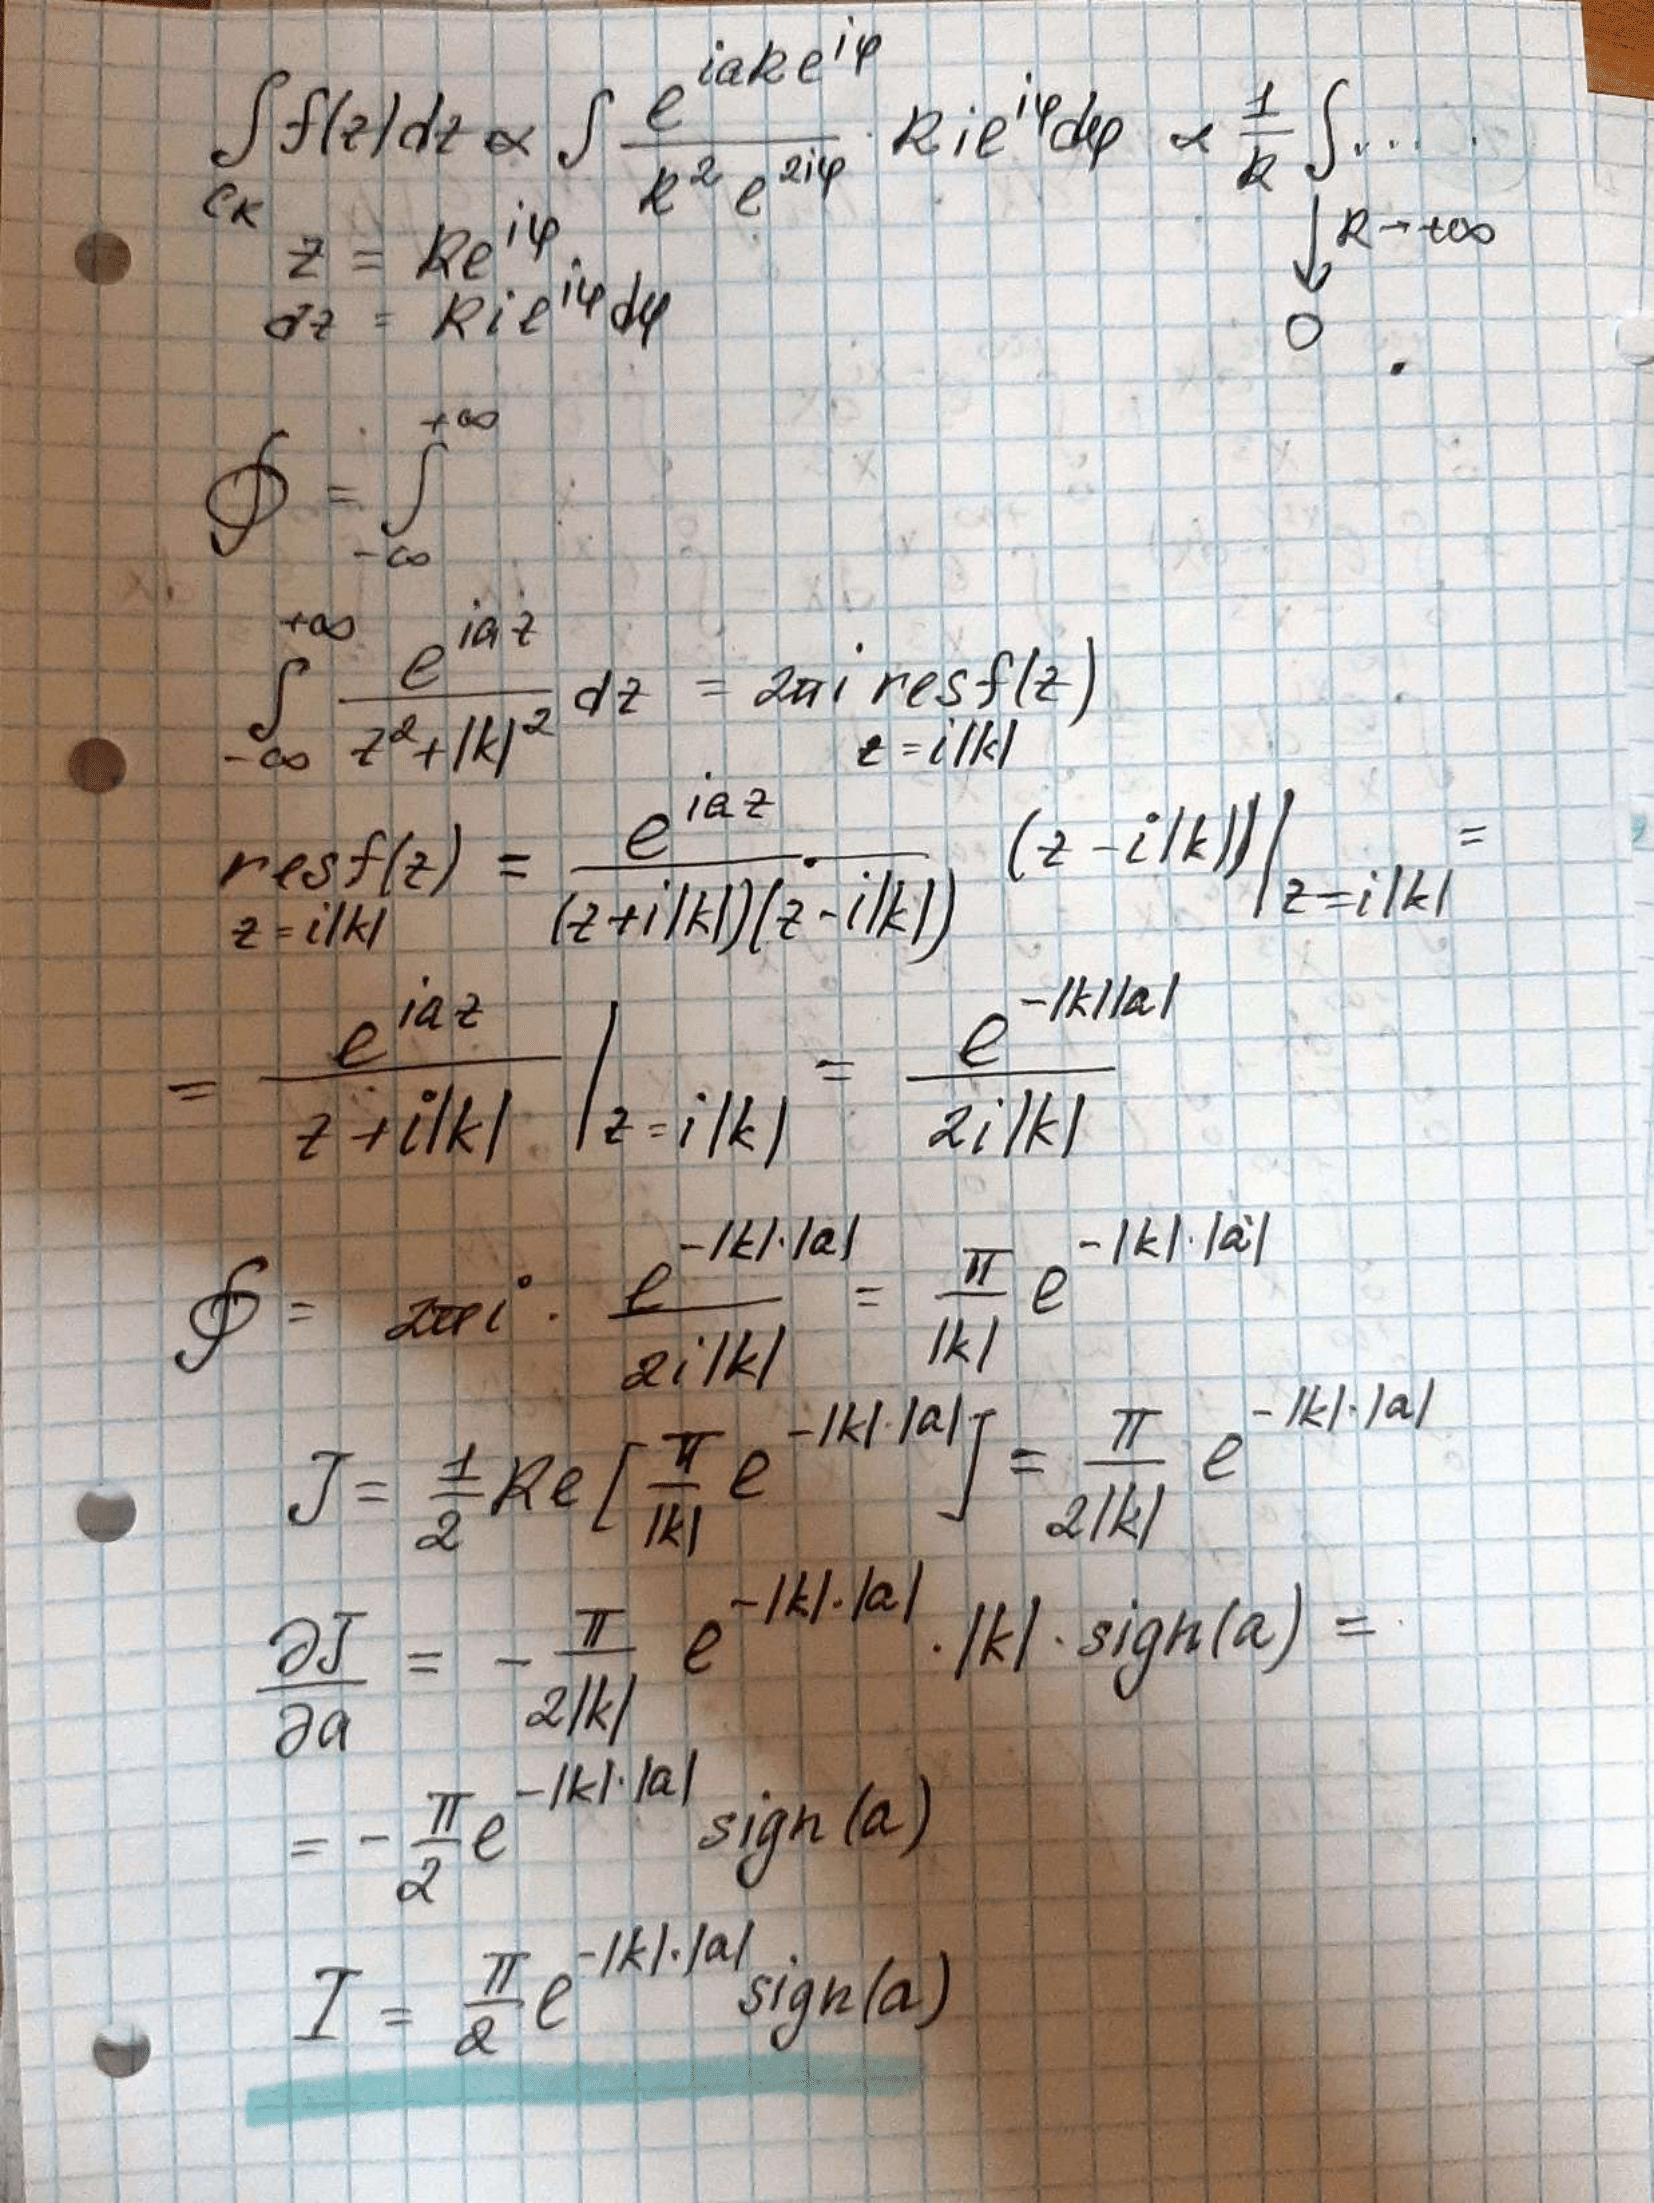 ∫_{C_R} f(z)dz ∝ ∫ e^{iaRe^{iφ}} / (R² e^{2iφ}) · Rie^{iφ}dφ ∝ 1/R ∫....
z = Re^{iφ}
R→+∞
dz = Rie^{iφ}dφ
0
∮ = ∫_{-∞}^{+∞}
∫_{-∞}^{+∞} e^{iaz} / (z²+|k|²) dz = 2πi res f(z)
z=i|k|
res f(z) = e^{iaz} / ((z+i|k|)(z-i|k|)) (z-i|k|)) |_{z=i|k|} =
z=i|k|
= e^{iaz} / (z+i|k|) |_{z=i|k|} = e^{-|k||a|} / (2i|k|)
∮ = 2πi · e^{-|k|·|a|} / (2i|k|) = π/|k| e^{-|k|·|a|}
J = 1/2 Re[π/|k| e^{-|k|·|a|}] = π/(2|k|) e^{-|k|·|a|}
∂J/∂a = - π/(2|k|) e^{-|k|·|a|} · |k| · sign(a) =
= - π/2 e^{-|k|·|a|} sign(a)
I = π/2 e^{-|k|·|a|} sign(a)